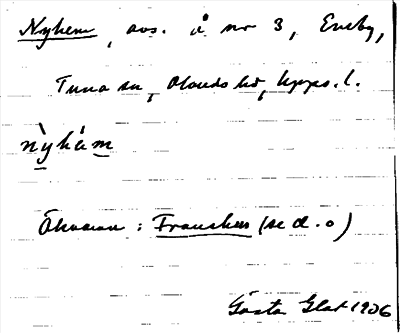 Nyhem, avs. å nr 3, Eneby,
Tuna sn, Olands hd, Upps. l.
nỳhèm
Öknamn: Franshem (se d. o)
Gösta Glas 1906